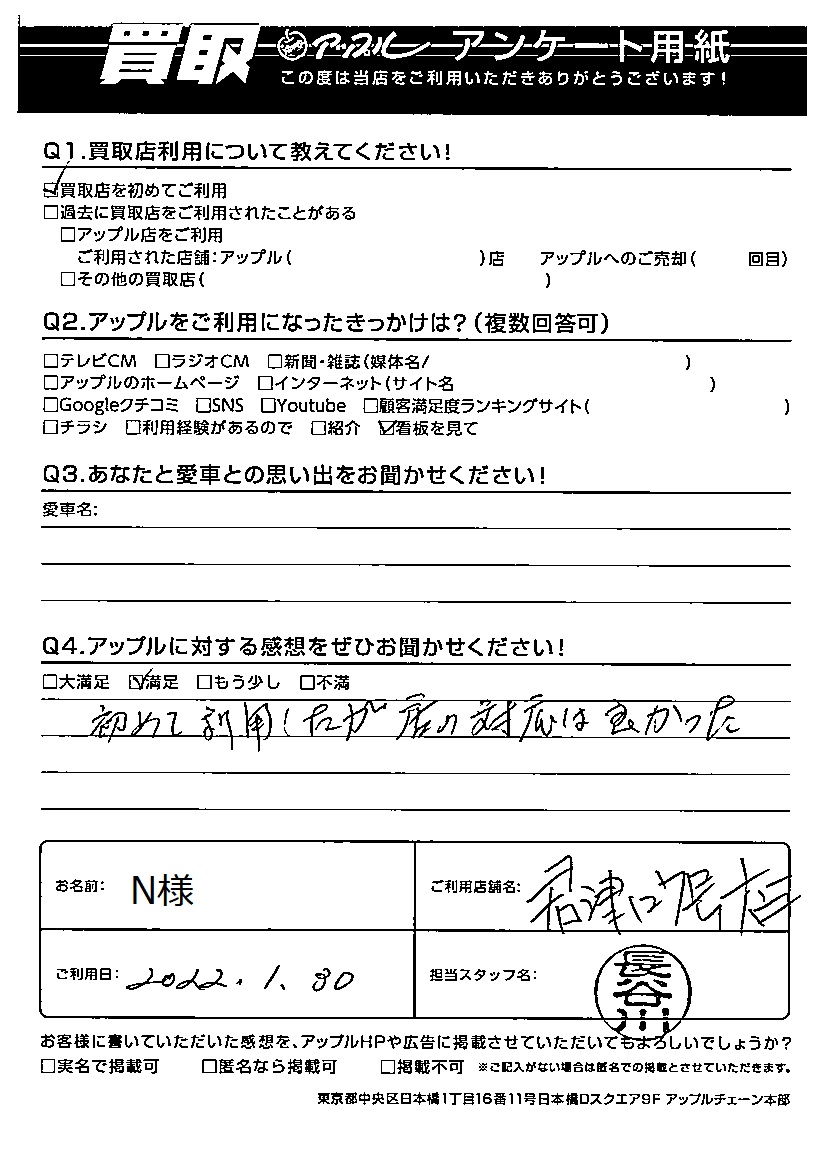 買取 アップル アンケート用紙
この度は当店をご利用いただきありがとうございます!
Q1.買取店利用について教えてください!
☑買取店を初めてご利用
□過去に買取店をご利用されたことがある
□アップル店をご利用
ご利用された店舗:アップル( )店 アップルへのご売却( 回目)
□その他の買取店( )
Q2.アップルをご利用になったきっかけは?(複数回答可)
□テレビCM □ラジオCM □新聞・雑誌(媒体名/ )
□アップルのホームページ □インターネット(サイト名 )
□Googleクチコミ □SNS □Youtube □顧客満足度ランキングサイト( )
□チラシ □利用経験があるので □紹介 ☑看板を見て
Q3.あなたと愛車との思い出をお聞かせください!
愛車名:
Q4.アップルに対する感想をぜひお聞かせください!
□大満足 ☑満足 □もう少し □不満
初めて利用したが 店の対応は良かった
お名前: N様 ご利用店舗名: 君津口 店
ご利用日: 2022.1.30 担当スタッフ名: 長谷川
お客様に書いていただいた感想を、アップルHPや広告に掲載させていただいてもよろしいでしょうか?
□実名で掲載可 □匿名なら掲載可 □掲載不可 ※ご記入がない場合は匿名での掲載とさせていただきます。
東京都中央区日本橋1丁目16番11号日本橋Dスクエア9F アップルチェーン本部